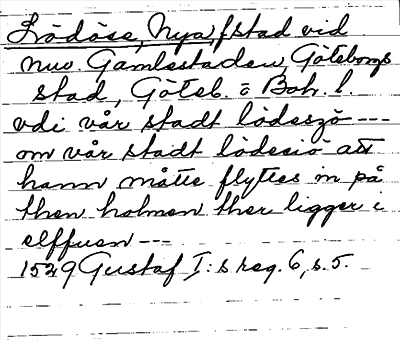 Lödöse, Nya f stad vid
nuv. Gamlestaden, Göteborgs
stad, Göteb. o Boh. l.
vdi vår stadt lödeszö ---
om vår stadt lödesiö att
hann måtte flyttes in på
then holmen ther ligger i
elffuen ---
1529 Gustaf I:s reg. 6, s. 5.